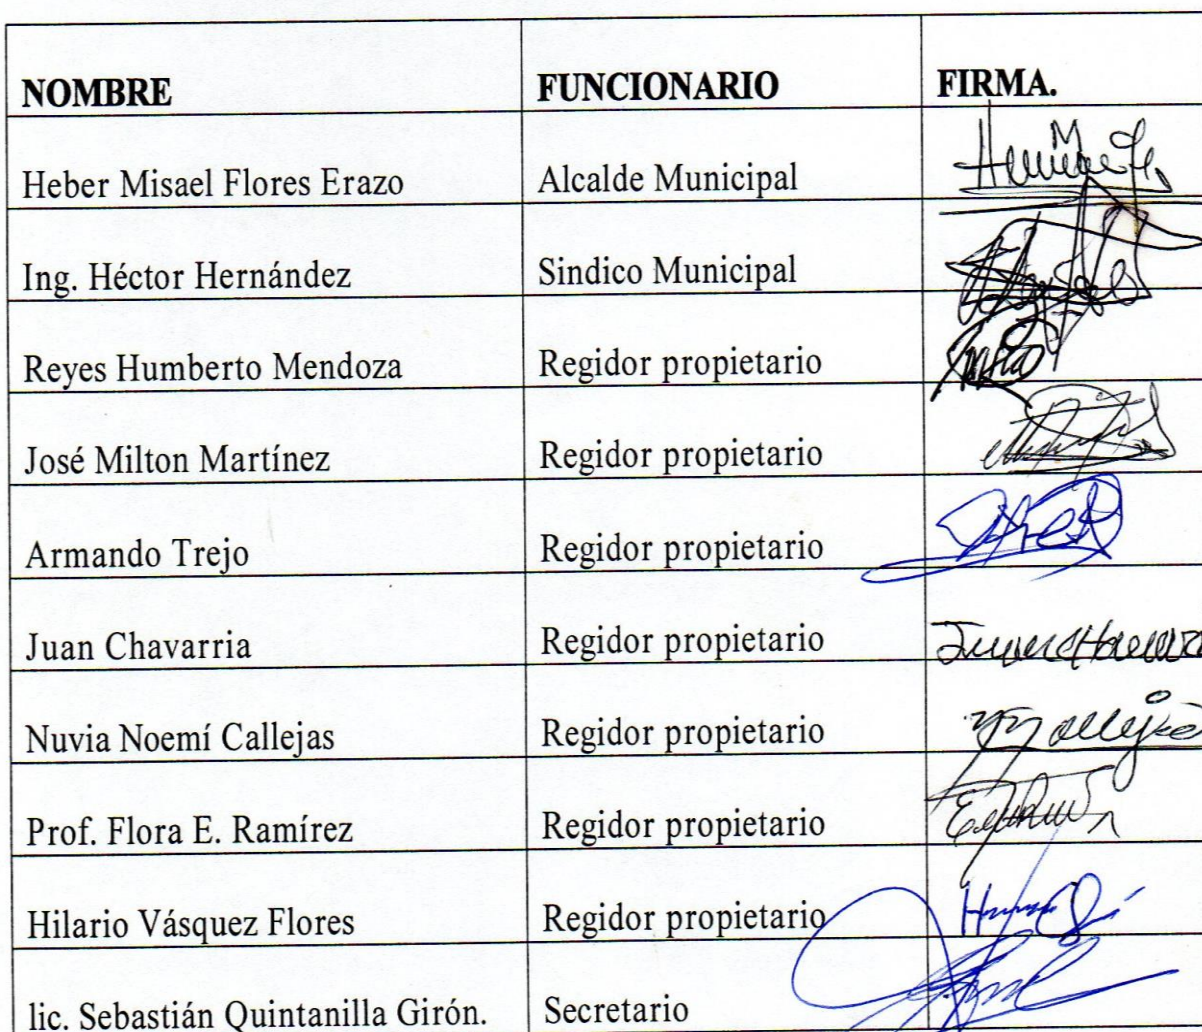 NOMBRE FUNCIONARIO FIRMA.
Heber Misael Flores Erazo Alcalde Municipal
Ing. Héctor Hernández Sindico Municipal
Reyes Humberto Mendoza Regidor propietario
José Milton Martínez Regidor propietario
Armando Trejo Regidor propietario
Juan Chavarria Regidor propietario
Nuvia Noemí Callejas Regidor propietario
Prof. Flora E. Ramírez Regidor propietario
Hilario Vásquez Flores Regidor propietario
lic. Sebastián Quintanilla Girón. Secretario